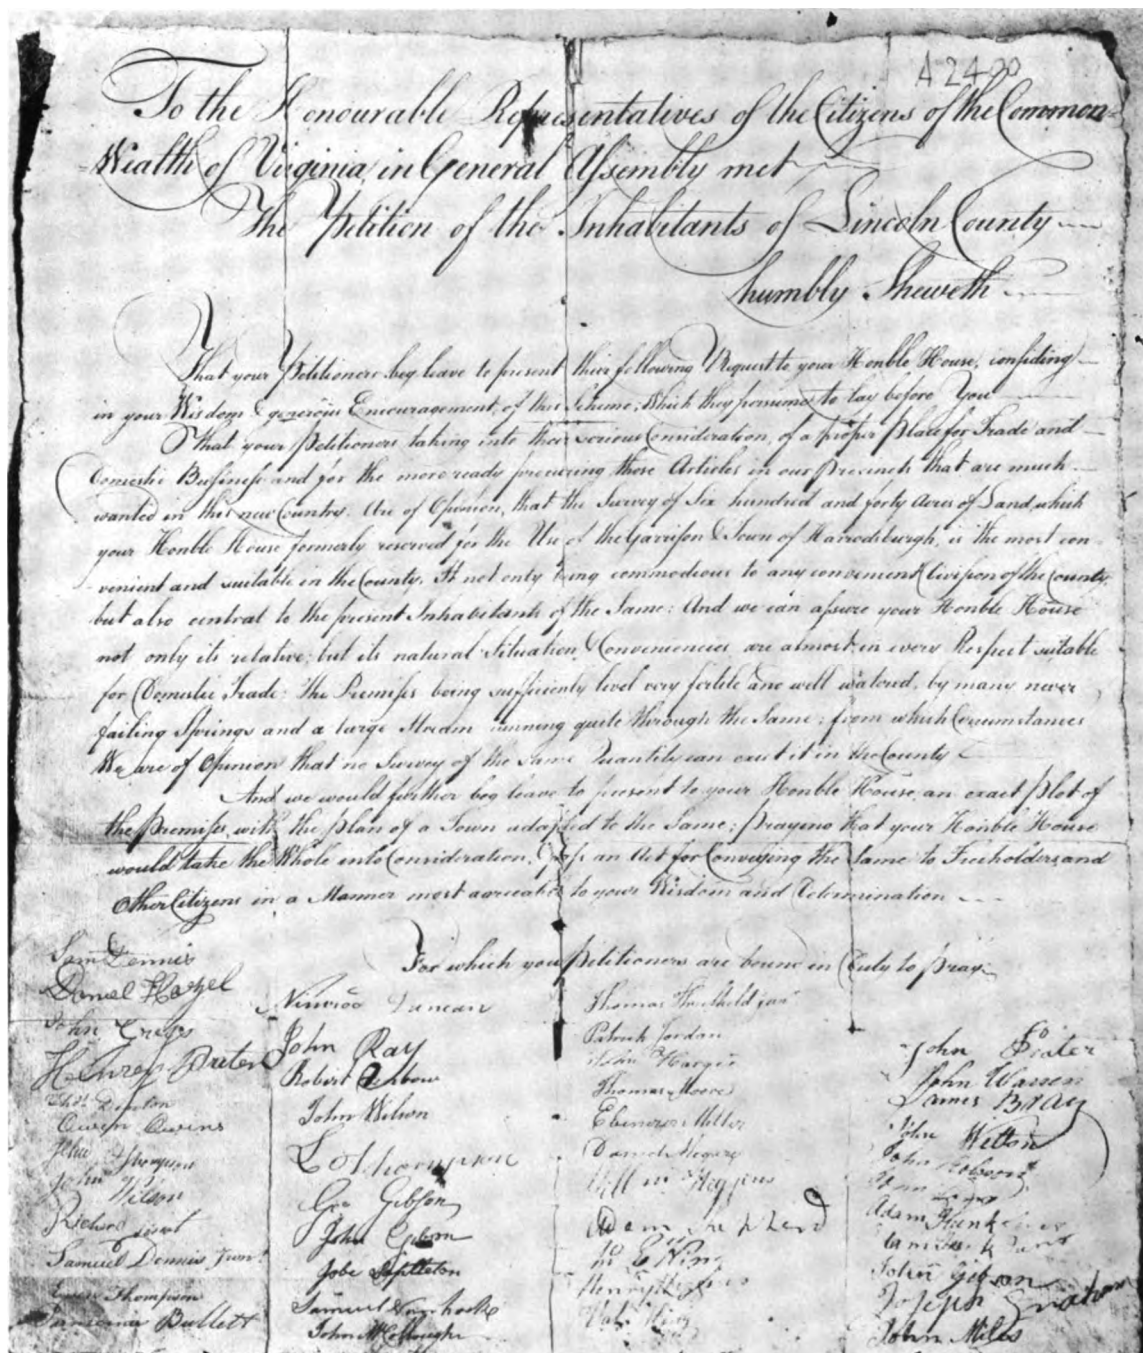 A 2400
To the Honourable Representatives of the Citizens of the Common=
=Wealth of Virginia, in General Assembly met
The Petition of the Inhabitants of Lincoln County
humbly Sheweth
That your Petitioners beg leave to present their following Request to your Honble House, confiding
in your Wisdom & generous Encouragement, of this Scheme; Which they persume to lay before You
That your Petitioners taking into their serious Consideration, of a proper Place for Trade and
Domestic Business and for the more ready procuring those Articles in our Precincts that are much
wanted in this new Country. Are of Opinion, that the Survey of Six hundred and forty Acres of Land, which
your Honble House formerly reserved for the Use of the Garrison & Town of Harrodsburgh, is the most con-
-venient and suitable in the County. It not only being commodious to any convenient Division of the County,
but also central to the present Inhabitants of the Same: And we can assure your Honble House
not only its relative; but its natural Situation & Conveniencies are almost in every Respect suitable
for Domestic Trade: The Premises being sufficiently level very fertile and well watered, by many never
failing Springs and a large Stream running quite through the Same; from which Circumstances
We are of Opinion that no Survey of the same Quantity can excel it in the County
And we would further beg leave to present to your Honble House, an exact Plot of
the Premises, with the Plan of a Town adapted to the Same; Praying that your Honble House
would take the Whole into Consideration, & pass an Act for Conveying the Same to Freeholders, and
Other Citizens in a Manner most agreeable to your Wisdom and Determination
For which your Petitioners are bound in Duty to Pray
Sam Dennis
Daniel
John
Henrey
Thos Denton
Owen Owins
John Thompson
John Wilson
Richard
Samuel Dennis Junr
Even Thompson
Bullett
Nimrod Duncan
John Ray
Robert
John Wilson
Thompson
Geo Gibson
John Gibson
Jobe
Samuel
John McCollough
Thomas
Patrick Jordan
Thomas Moore
Ebenezer Miller
David
Higgins
Adam Shepherd
King
Henry
John
John Warren
James BRAY
John
John
Adam
John Gibson
Joseph
John Miles